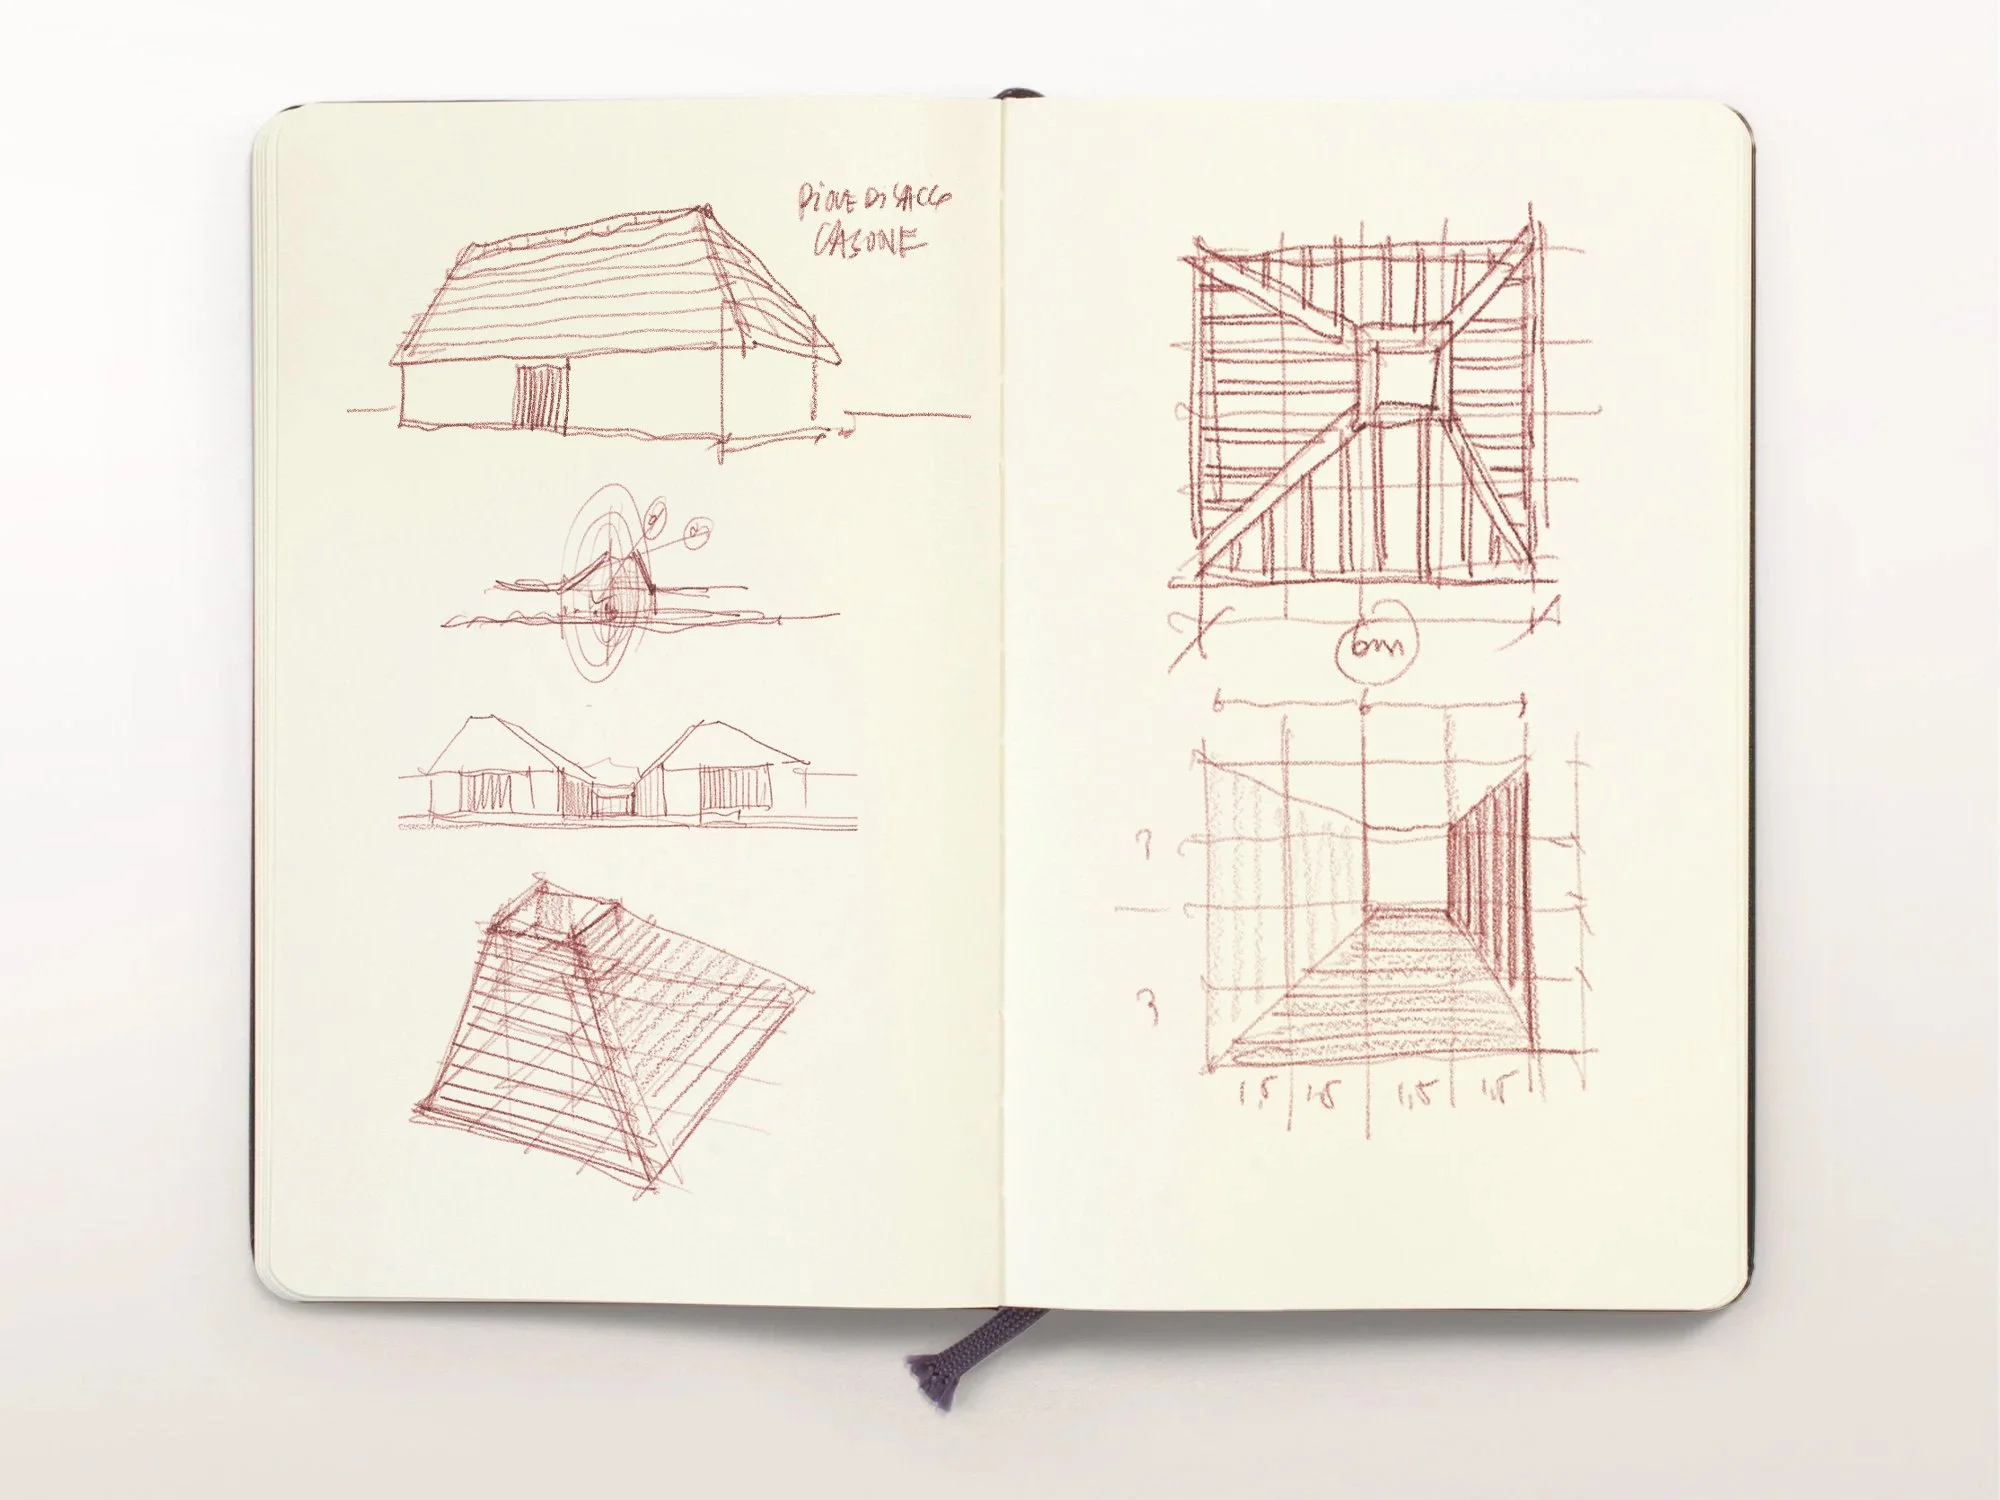 PIOVE DI SACCO
CASONE
6m
3
1,5 1,5 1,5 1,5